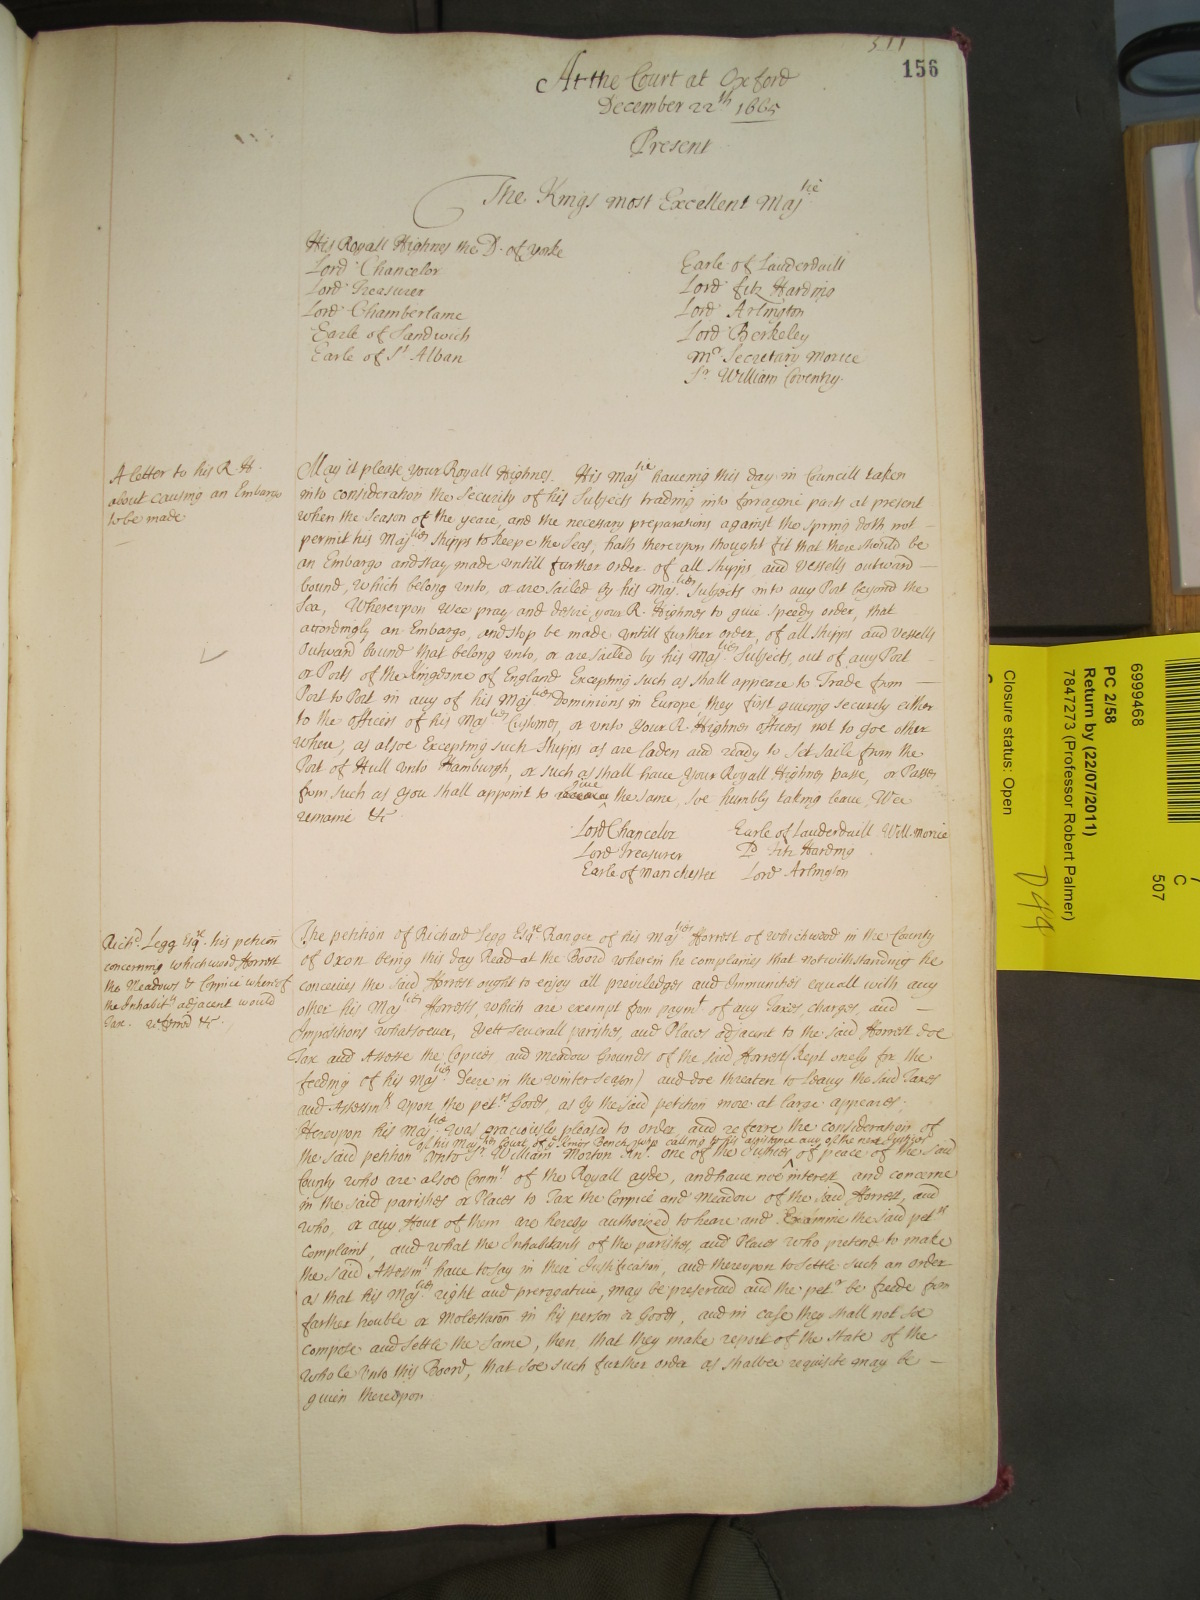 511
156
At the Court at Oxford
December 22th 1665
Present
The Kings most Excellent Majtie
His Royall Highnes the D. of Yorke
Lord Chancelor
Lord Treasurer
Lord Chamberlaine
Earle of Sandwich
Earle of St Alban
Earle of Lauderdaill
Lord fitz Harding
Lord Arlington
Lord Berkeley
Mr Secretary Morice
Sr William Coventry.
A letter to his R. H.
about causing an Embargo
to be made
May it please your Royall Highnes. His Majtie haveing this day in Councill taken
into consideration the Security of his Subjects trading into forraigne parts at present
when the Season of the yeare, and the necessary preparations against the spring doth not
permit his Majties Shipps to keepe the Seas, hath thereupon thought fit that there should be
an Embargo and stay made untill further order of all shipps and Vessells outward
bound, which belong unto, or are sailed by his Majties Subjects into any Port beyond the
Sea, Whereupon Wee pray and desire your R. Highnes to give speedy order, that
accordingly an Embargo, and stop be made untill further order, of all shipps and Vessells
outward bound that belong unto, or are sailed by his Majties Subjects, out of any Port
or Ports of the Kingdome of England Excepting such as shall appeare to Trade from
Port to Port in any of his Majties Dominions in Europe they first giveing security either
to the officers of his Majties Customes, or unto your R. Highnes officers not to goe other
where, as alsoe Excepting such Shipps as are laden and ready to set saile from the
Port of Hull unto Hamburgh, or such as shall have your Royall Highnes passe, or Passes
from such as you shall appoint to give the same, soe humbly takeing leave, Wee
remaine &c
Lord Chancelor
Lord Treasurer
Earle of Manchester
Earle of Lauderdaill
Ld Fitz Harding
Lord Arlington
Will. Morice
Richd. Legg Esqre. his peticon
concerning whichwood Forrest
the Meadows & Coppice whereof
the Inhabitts adjacent would
Tax. referrd &c.
The petition of Richard Legg Esqre Ranger of his Majties Forrest of Whichwood in the County
of Oxon being this day Read at the Board wherein he complaines that notwithstanding he
conceives the said Forrest ought to enjoy all priviledges and Immunities equall with any
other his Majties Forrests, which are exempt from paymt of any Taxes, charges, and
Impositions whatsoever, Yett severall parishes, and Places adjacent to the said Forrest doe
Tax and Assesse the Copices and meadow Grounds of the said Forrest (Kept onely for the
feeding of his Majties Deere in the winter season) and doe threaten to Leavy the said Taxes
and Assessmts upon the petrs Goods, as by the said petition more at large appeares;
Hereupon his Majtie was graciously pleased to order, and referre the consideration of
of his Majties Court of ye Kings Bench, who calling to his assistance any of the next Justices
the said petition unto Sr William Morton Knt. one of the Justices of peace of the said
County who are alsoe Commrs of the Royall ayde, and have noe interest and concerne
in the said parishes or Places to Tax the Coppice and meadow of the said Forrest, and
who, or any Four of them are hereby authorized to heare and Examine the said petrs
Complaint, and what the Inhabitants of the parishes, and Places who pretend to make
the said Assessmts have to say in their Justification, and thereupon to settle such an order
as that his Majties right and prerogative, may be preserved and the petr be freede from
farther trouble or Molestation in his person or Goods, and in case they shall not soe
compose and settle the same, then that they make report of the State of the
whole unto this Board, that soe such further order as shalbee requisite may be
given thereupon
6999468
PC 2/58
Return by (22/07/2011)
7847273 (Professor Robert Palmer)
Closure status: Open
C
507
D44